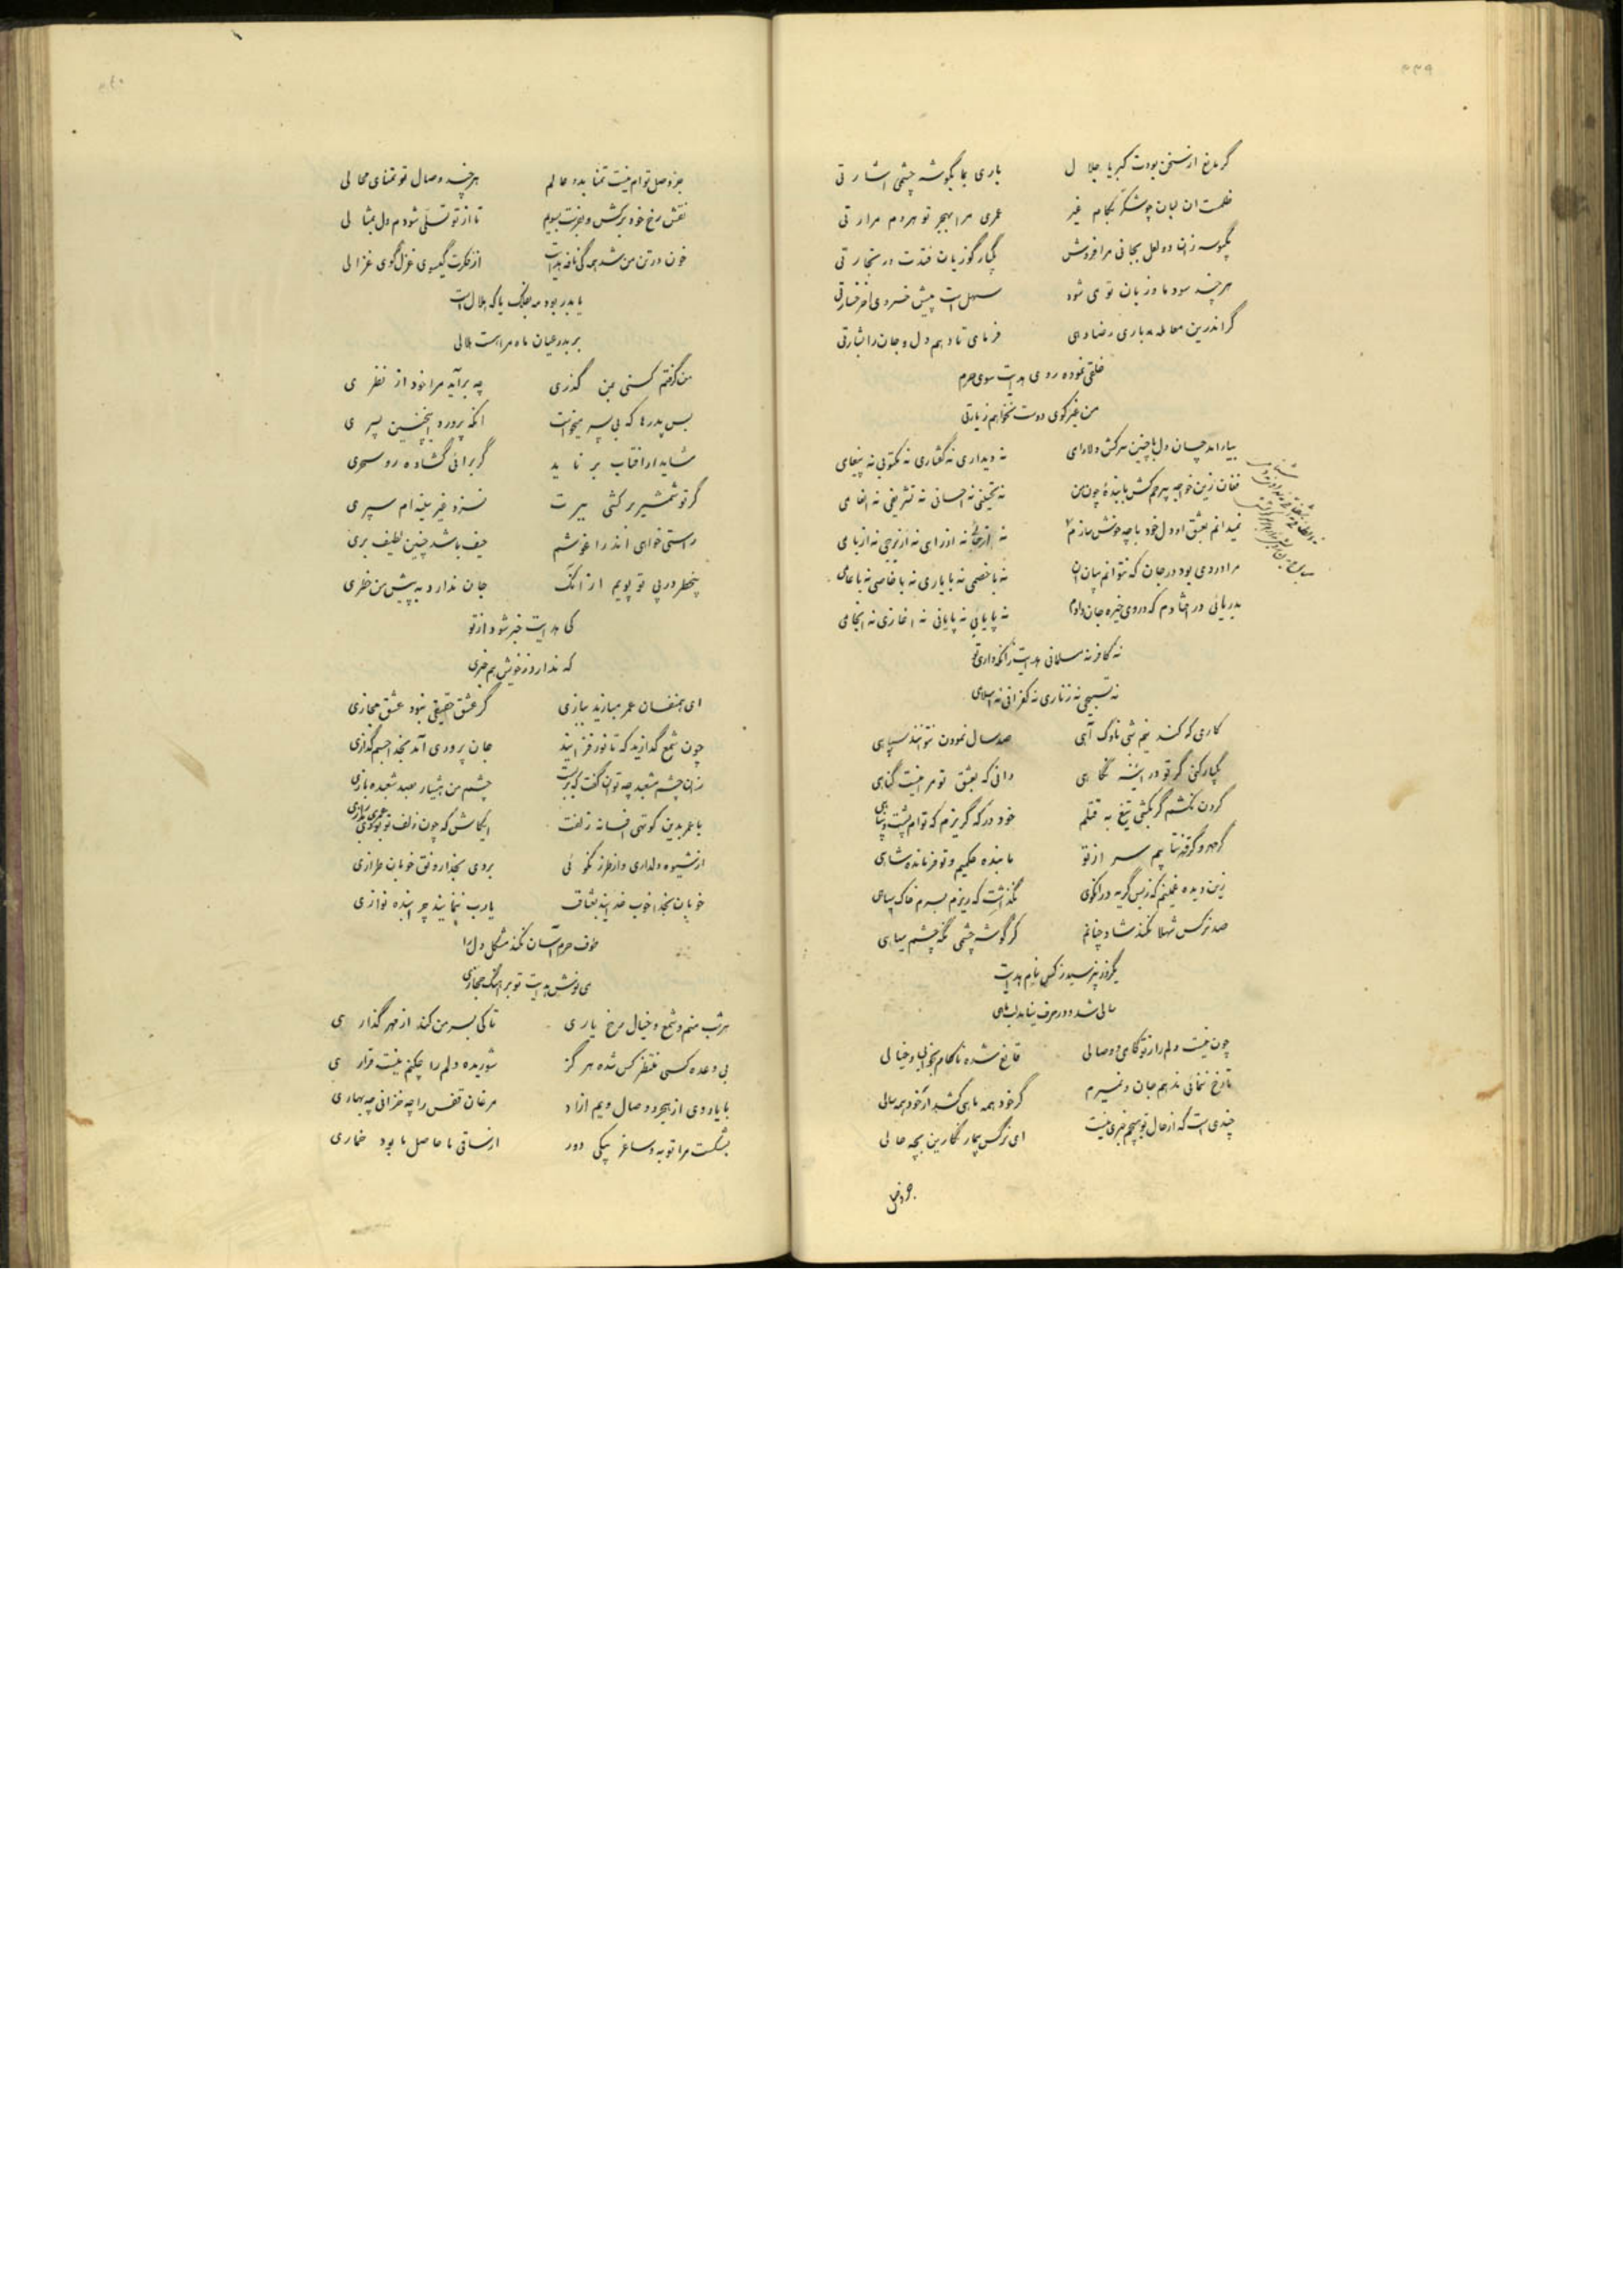 ۳۳۹
گر مانع از سخن بودت کبریا جلال باری بما بگوشه چشمی اشارتی
ظلمست ان لبان چو شکر بکام غیر عمری مرا بهجر تو هردم مرارتی
یکبوسه زان دو لعل بجانی مرا فروش یکبار گو زیان فتدت در تجارتی
هرچند سود ما و زیان تو می شود سهل است پیش خسروی اخر خسارتی
گر اندرین معامله باری رضا دهی فرمای تا دهم دل و جان را بشارتی
خلقی نموده روی هدایت سوی حرم
من غیر کوی دوست نخواهم زیارتی
بیارامد چسان دل با چنین سرکش دلارای نه دیداری نه گفتاری نه مکتوبی نه پیغامی
فغان زین خواجه بیرحم کش با بندهٔ چون من نه تحسینی نه احسانی نه تشریفی نه انعامی
نمیدانم بعشق او دل خود با چه خوش سازم نه
مرا دردی بود در جان که نتوانم بیان ان نه با خصمی نه با یاری نه با خاصی نه با عامی
بدریائی در افتادم که در وی خیره جان دادم نه پایابی نه پایانی نه اغازی نه انجامی
نه کافر نه مسلمانی هدایت زانکه داری تو
نه تسبیحی نه زناری نه کفرانی نه اسلامی
کاری که کند نیم شبی ناوک آهی صد سال نمودن نتوانند سپاهی
یکبار کنی گر تو در ائینه نگاهی دانی که بعشق تو مرا نیست گناهی
گردن نکشم گر بکشی تیغ به قتلم خود در که گریزم که توام پشت و پناهی
نتابیم سر از تو ما بنده حکمیم و تو فرمانده شاهی
زین دیده غمینم که ز بس گریه در انکوی نگذاشت که ریزم بسرم خاک سیاهی
صد نرگس شهلا نکند شاد چنانم کز گوشه چشمی نگه چشم سیاهی
یکروز نپرسید ز کس نام هدایت
سالی شد و در حرف نیامد لب ماهی
چون نیست دلم را ز تو کامی و وصالی قانع شده ناکام بخوابی و خیالی
تا رخ ننمائی ندهم جان و نمیرم گر خود همه ماهی کشد ار خود همه سالی
چندی است که از حال تو هیچم خبری نیست ای نرگس بیمار نگارین بچه حالی
جز وصل
جز وصل توام نیست تمنا بدو عالم هرچند وصال تو تمنای محالی
نقش رخ خود برکش و بفرست بسویم تا از تو تسلی شودم دل بمثالی
خون در تن من شد همه گی نافه هدایت از فکرت گیسوی غزل گوی غزالی
یا بدر بود مه بفلک یا که هلال است
بر بدر عیان ماه مرا هست هلالی
من گرفتم کنی بمن گذری چه برآید مرا نود از نظری
بس پدرها که بی پسر میخواست انکه پرورد اینچنین پسری
شاید ار افتاب بر ناید گر برائی گشاده رو سحری
گر تو شمشیر برکشی بیرت نسزد غیر سینه ام سپری
راستی خواهی اندر اغوشم حیف باشد چنین لطیف بری
بیخطر در پی تو پویم از انک جان ندارد به پیش من خطری
کی هدایت خبر شود از تو
که ندارد ز خویش هم خبری
ای همنفسان عمر مبازید ببازی گر عشق حقیقی نبود عشق مجازی
چون شمع گدازید که تا نور فزائید جان پروری آمد بخدا جسم گدازی
زان چشم مشعبد چه توان گفت که بربست چشم من هشیار بصد شعبده بازی
با عمر بدین کوتهی افسانه زلفت ایکاش که چون زلف تو بودی بدرازی
از شیوه دلداری و از طرز نکوئی بردی بخدا رونق خوبان طرازی
خوبان بخدا خوب خدایند بعشاق یارب ننمایند چرا بنده نوازی
طوف حرم آسان نکند مشکل دل را
می نوش هدایت تو بر اهنگ حجازی
هر شب منم و شمع و خیال رخ یاری تا کی بسر من کند از مهر گذاری
بی وعده کسی منتظر کس شده هرگز شوریده دلم را چکنم نیست قراری
با یاد وی از هجر و وصال ویم ازاد مرغان قفس را چه خزانی چه بهاری
بشکست مرا توبه و ساغر بیکی دور از ساقی ما حاصل ما بود خماری